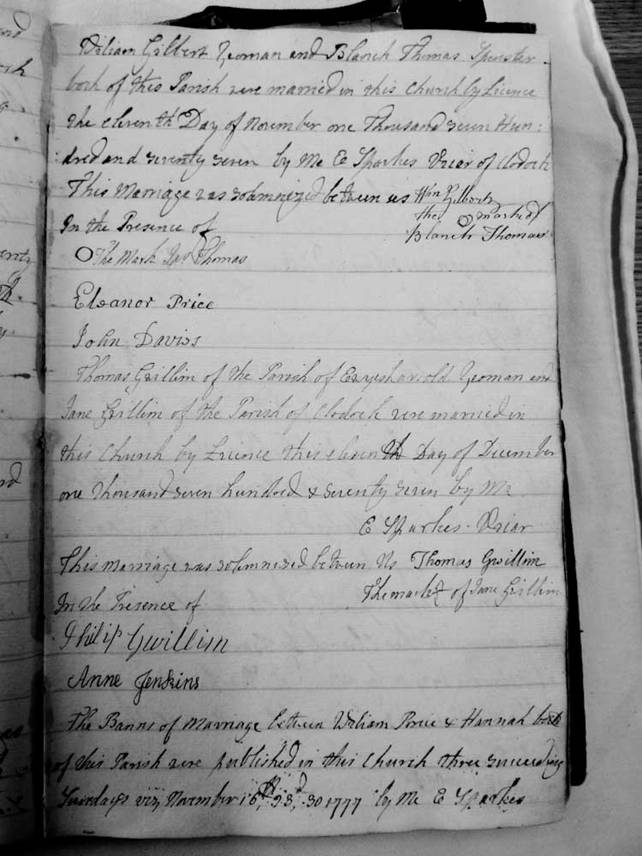 William Gilbert Yeoman and Blanch Thomas Spinster
both of this Parish were married in this Church by Licence
the eleventh Day of November one Thousand seven Hun:
dred and seventy seven by Me E Sparkes Vicar of Clodock
This Marriage was solemnized between us Wm Gilbert
the O mark of
In the Presence of Blanch Thomas
O The Mark Thomas
Eleanor Price
John Daviss
Thomas Grillim of the Parish of Ewyasharold Yeoman and
Jane Grillim of the Parish of Clodock were married in
this Church by Licence this eleventh Day of December
one thousand seven hundred & seventy seven by Me
E Sparkes Vicar
This marriage was solemnized between Us Thomas Gwillim
The mark of Jane Grillim
In the Presence of
Philip Gwillim
Anne Jenkins
The Banns of Marriage between William & Hannah both
of this Parish were published in this Church three succeeding
Sundays viz November 16th, 23d, 30 1777 by Me E Sparkes